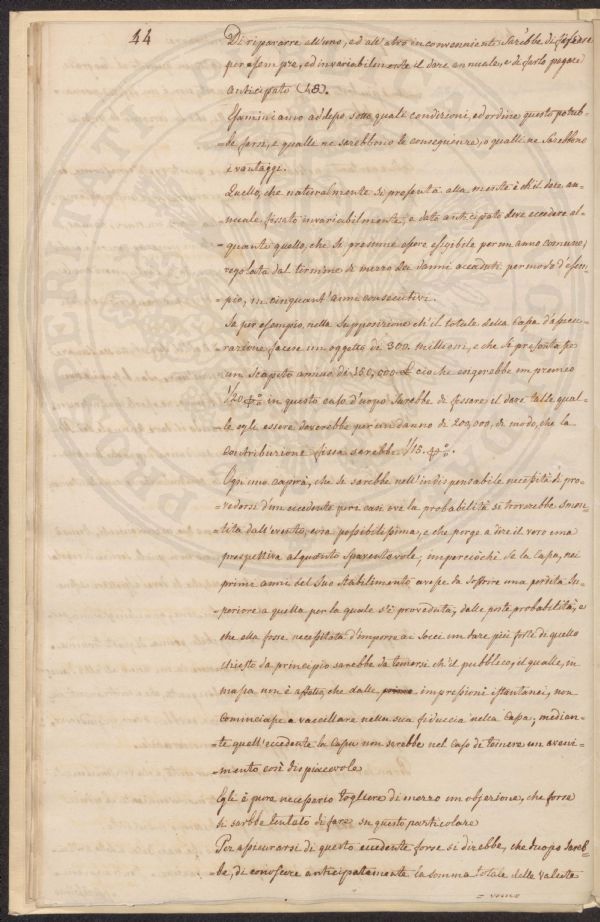 44
Di ripararre all'uno, ed all'atro inconvenniente Sarebbe di fissare
per sempre, ed invariabilmente il dare annuale, e di farlo pagare
anticipato (48).
Esaminiamo addesso sotto quali condizioni, ed ordine questo potreb-
-be farsi, e qualle ne sarebbono le conseguenze, o qualli ne sarebbono
i vantaggi.
Quello, che naturalmente si presenta alla mente è ch'il dare an-
-nuale fissato invariabilmente, e dato anticipato deve eccedere al-
-quanto quello, che si presume essere essigibile per un anno comune,
regolata dal termine di mezzo dei danni accaduti per modo d'esem-
-pio, in cinquant'anni consecutivi.
Se per esempio nella Supposizione ch'il totale della Cassa d'assicu-
-razione facesse un oggetto di 300. millioni, e che si presenta se
un scapito annuo di 150,000 £ cio che esigerebbe un premeo
1/20 p% in questo caso d'uopo sarebbe di fissare il dare talle, qual-
-le egli essere doverebbe per un danno di 200,000, di modo, che la
Contribuzione fissa sarebbe 1/15. p%.
Ogn'uno saprà, che se sarebbe nell'indispensabile necessità di pro-
-vedersi d'un eccedente pere casi ove la probabilità si troverebbe smen-
-tita dall'evento, cosa possibilissima, e che porge a dire il vero una
prospettiva alquanto spaventevole; imperciòchè se la Cassa, nei
prime anni del Suo Stabilimento avesse da soffrire una perdita Su-
-periore a quella per la quale s'è proveduta, dalle poste probabilità, e
che ella fosse necessitata d'imporre ai Socei un dare più forte di quello
chiesto da principio sarebbe da temersi ch'il pubblico, il qualle, in
massa non è affetto, che dalle prime impressioni istantanei, non
Cominciasse a vaccillare nella sua fiducia nella Cassa; median-
-te quell'eccedente la Cassa non sarebbe nel Caso di temere un aveni-
-mento così dispiacevole
Egli è pure necessario togliere di mezzo un objezione, che forse
si sarbbe tentato di fare su questo particolare
Per assicurarsi di questo eccedente forse si direbbe, che d'uopo sareb-
-be, di conoscere anticipatamente la somma totale delle valeste